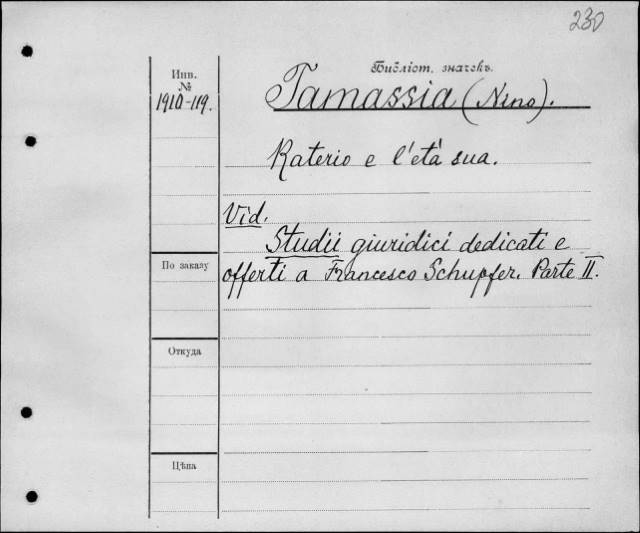 230
Библіот. значекъ.
Инв.
№
1910-119.
Tamassia (Nino).
Raterio e l'età sua.
Vid.
Studii giuridici dedicati e
offerti a Francesco Schupfer. Parte II.
По заказу
Откуда
Цѣна